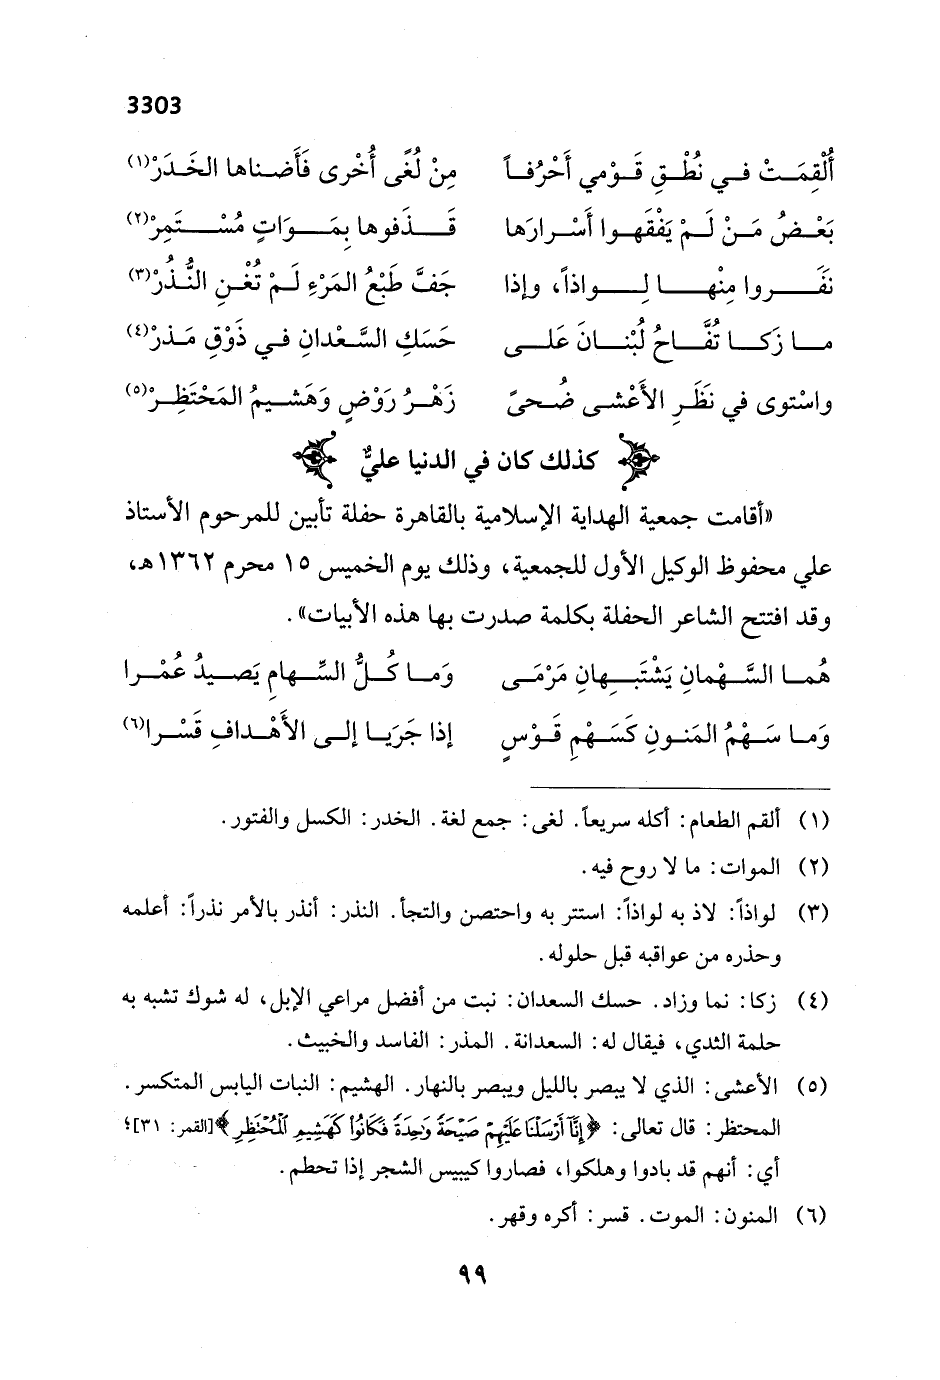 3303
أُلْقِمَتْ في نُطْقِ قَوْمي أَحْرُفاً مِنْ لُغًى أُخْرى فَأَضْناها الخَدَرْ(١)
بَعْضُ مَنْ لَمْ يَفْقَهوا أَسْرارَها قَذَفوها بِمَوَاتٍ مُسْتَمِرْ(٢)
نَفَروا مِنْها لِواذاً، وإذا جَفَّ طَبْعُ المَرْءِ لَمْ تُغْنِ النُّذُرْ(٣)
ما زَكا تُفَّاحُ لُبْنانَ عَلى حَسَكِ السَّعْدانِ في ذَوْقِ مَذِرْ(٤)
واسْتوى في نَظَرِ الأَعْشى ضُحىً زَهْرُ رَوْضٍ وَهَشيمُ المَحْتَظِرْ(٥)
كذلك كان في الدنيا عليٌّ
«أقامت جمعية الهداية الإسلامية بالقاهرة حفلة تأبين للمرحوم الأستاذ
علي محفوظ الوكيل الأول للجمعية، وذلك يوم الخميس ١٥ محرم ١٣٦٢هـ،
وقد افتتح الشاعر الحفلة بكلمة صدرت بها هذه الأبيات».
هُما السَّهْمانِ يَشْتَبِهانِ مَرْمَى وَما كُلُّ السِّهامِ يَصيدُ عُمْرا
وَما سَهْمُ المَنونِ كَسَهْمِ قَوْسٍ إذا جَرَيا إلى الأَهْدافِ قَسْرا(٦)
(١) ألقم الطعام: أكله سريعاً. لغى: جمع لغة. الخدر: الكسل والفتور.
(٢) الموات: ما لا روح فيه.
(٣) لواذاً: لاذ به لواذاً: استتر به واحتصن والتجأ. النذر: أنذر بالأمر نذراً: أعلمه
وحذره من عواقبه قبل حلوله.
(٤) زكا: نما وزاد. حسك السعدان: نبت من أفضل مراعي الإبل، له شوك تشبه به
حلمة الثدي، فيقال له: السعدانة. المذر: الفاسد والخبيث.
(٥) الأعشى: الذي لا يبصر بالليل ويبصر بالنهار. الهشيم: النبات اليابس المتكسر.
المحتظر: قال تعالى: ﴿إِنَّآ أَرْسَلْنَا عَلَيْهِمْ صَيْحَةً وَٰحِدَةً فَكَانُوا۟ كَهَشِيمِ ٱلْمُحْتَظِرِ﴾[القمر: ٣١]؛
أي: أنهم قد بادوا وهلكوا، فصاروا كيبيس الشجر إذا تحطم.
(٦) المنون: الموت. قسر: أكره وقهر.
٩٩